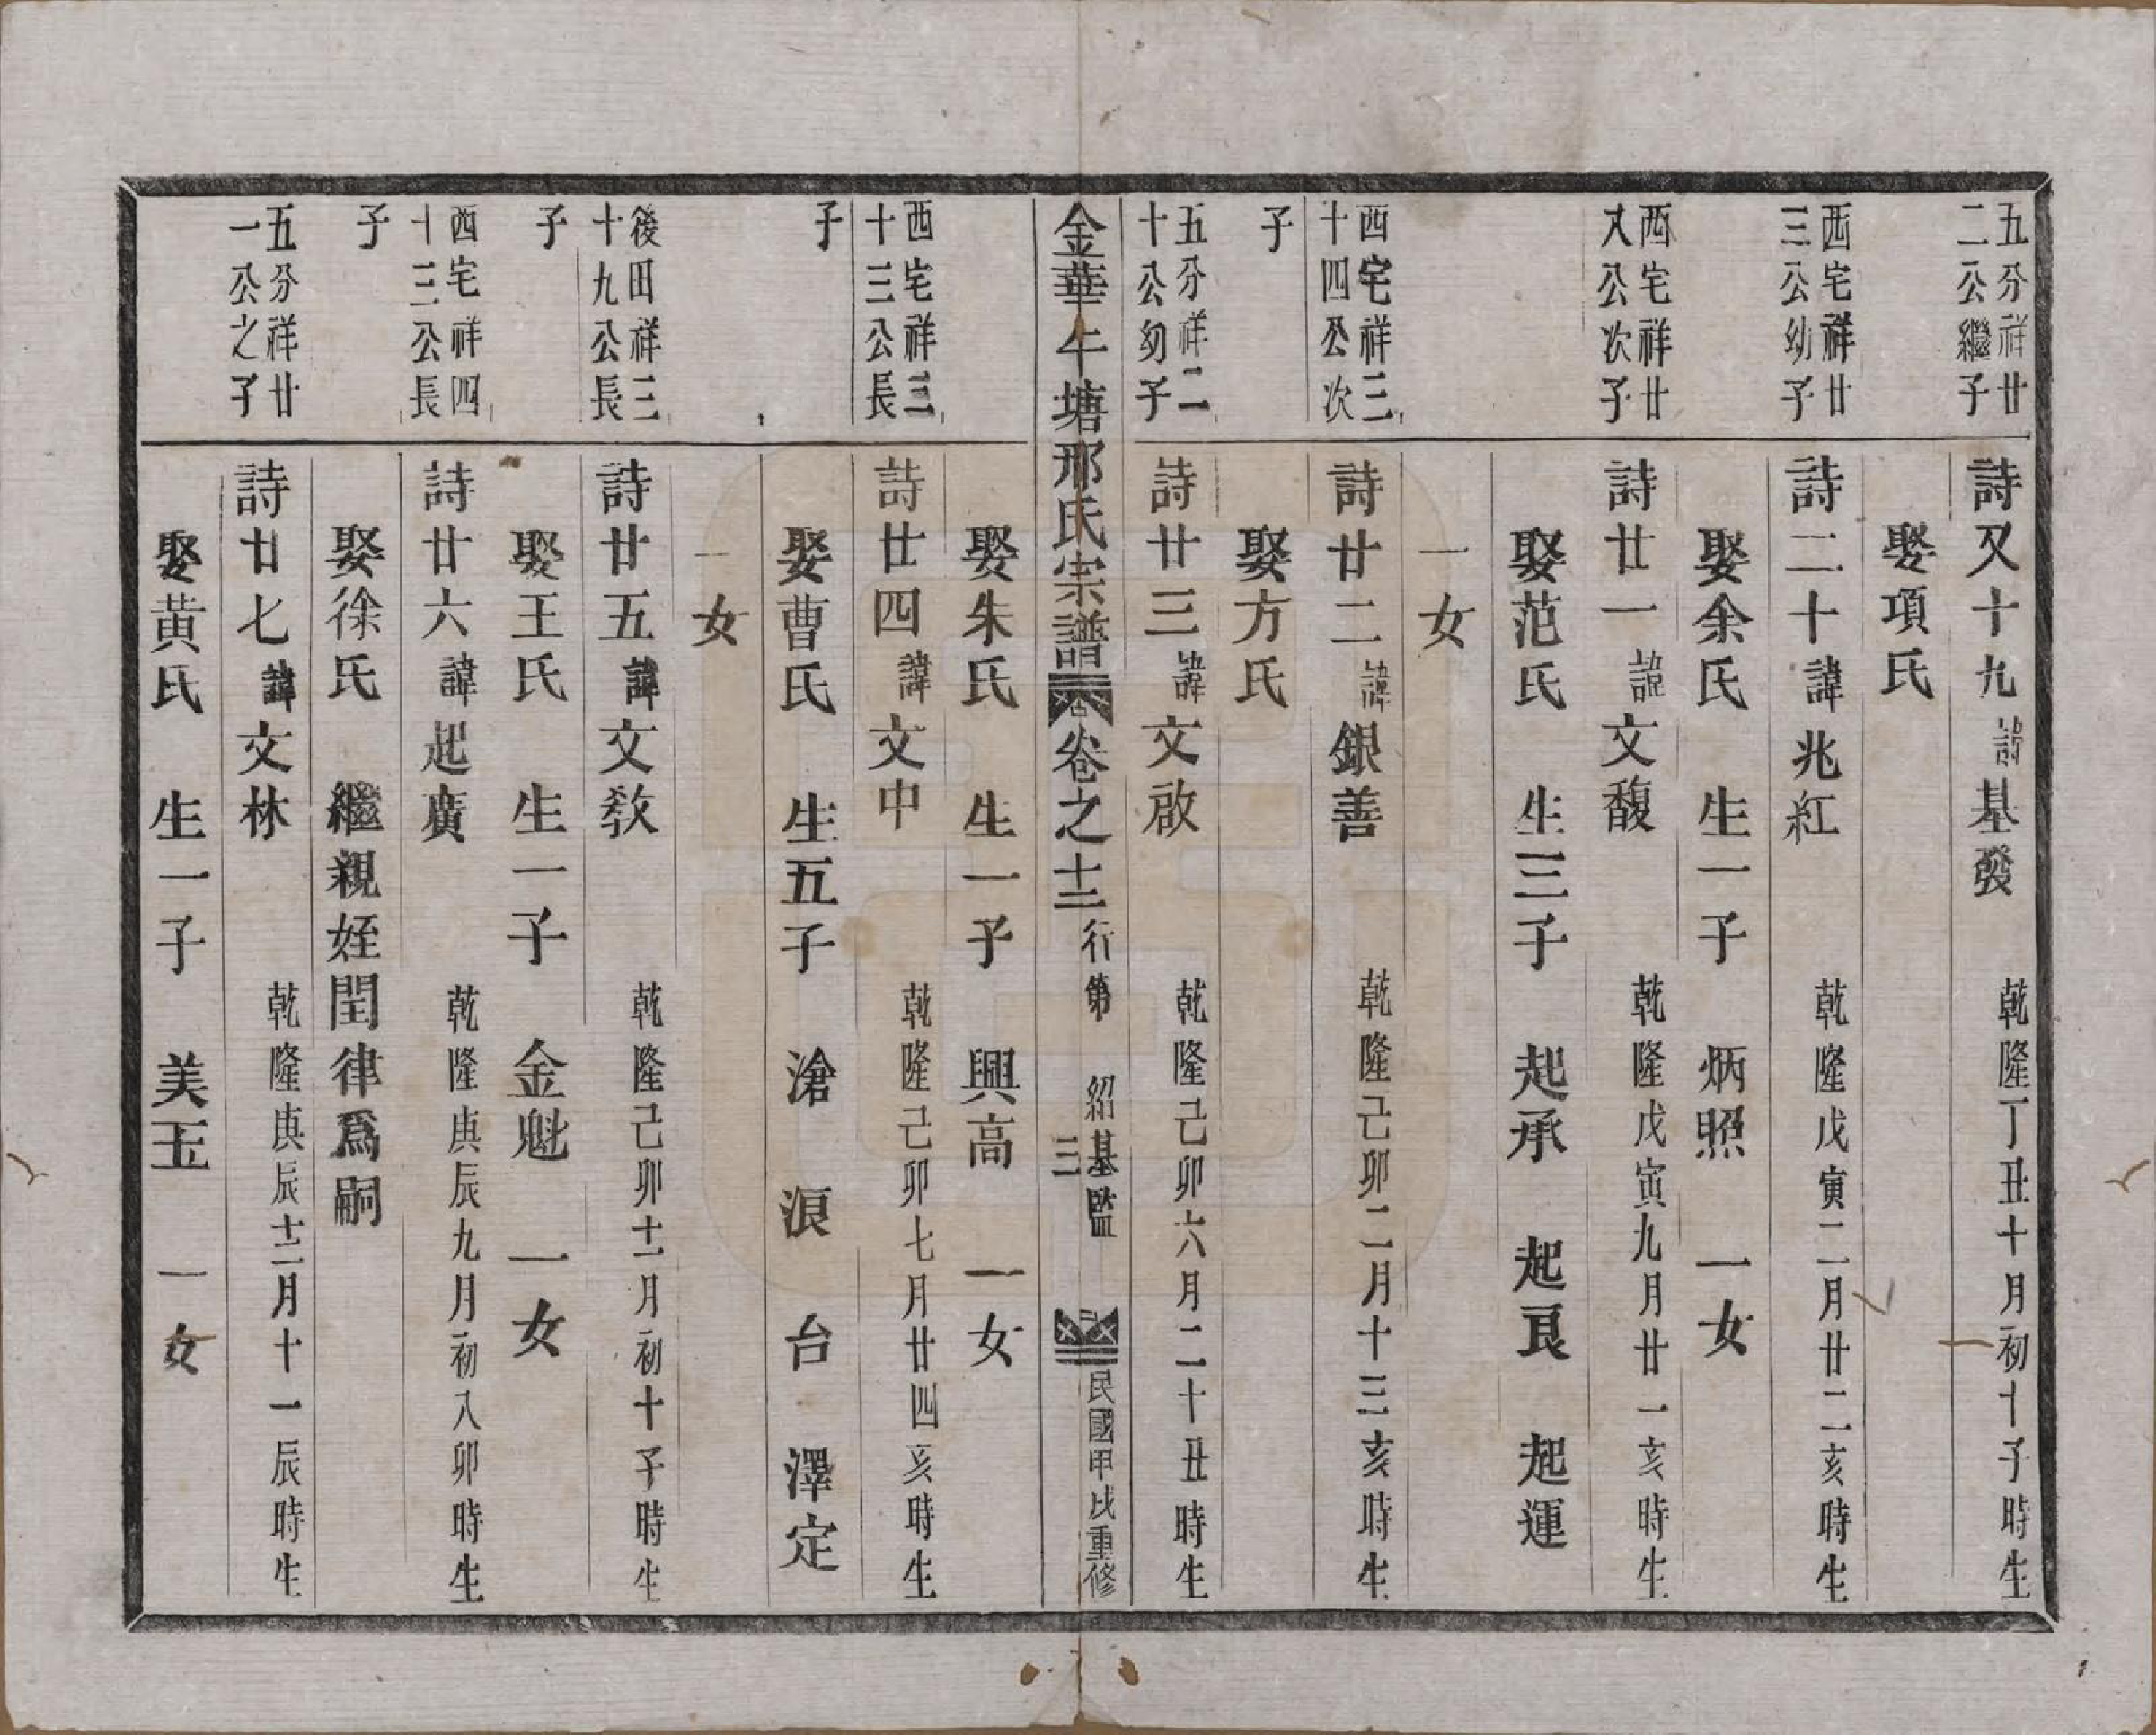 五分祥廿
二公繼子
詩又十九諱基發　乾隆丁丑十月初十子時生
娶項氏
西宅祥廿
三公幼子
詩二十諱兆紅　乾隆戊寅二月廿二亥時生
娶余氏　生一子　炳照　一女
西宅祥廿
又公次子
詩廿一諱文馥　乾隆戊寅九月廿一亥時生
娶范氏　生三子　起承　起良　起運
一女
西宅祥三
十四公次
子
詩廿二諱銀善　乾隆己卯二月十三亥時生
娶方氏
五分祥二
十公幼子
詩廿三諱文啟　乾隆己卯六月二十丑時生
金華午塘邢氏宗譜　卷之十二　行第　紹基監　三　民國甲戌重修
娶朱氏　生一子　興高　一女
西宅祥三
十三公長
子
詩廿四諱文中　乾隆己卯七月廿四亥時生
娶曹氏　生五子　滄　浪　台　澤定
一女
後田祥三
十九公長
子
詩廿五諱文敎　乾隆己卯十二月初十子時生
娶王氏　生一子　金魁　一女
西宅祥四
十三公長
子
詩廿六諱起廣　乾隆庚辰九月初八卯時生
娶徐氏　繼親姪閏律爲嗣
五分祥廿
一公之子
詩廿七諱文林　乾隆庚辰十二月十一辰時生
娶黃氏　生一子　美玉　一女